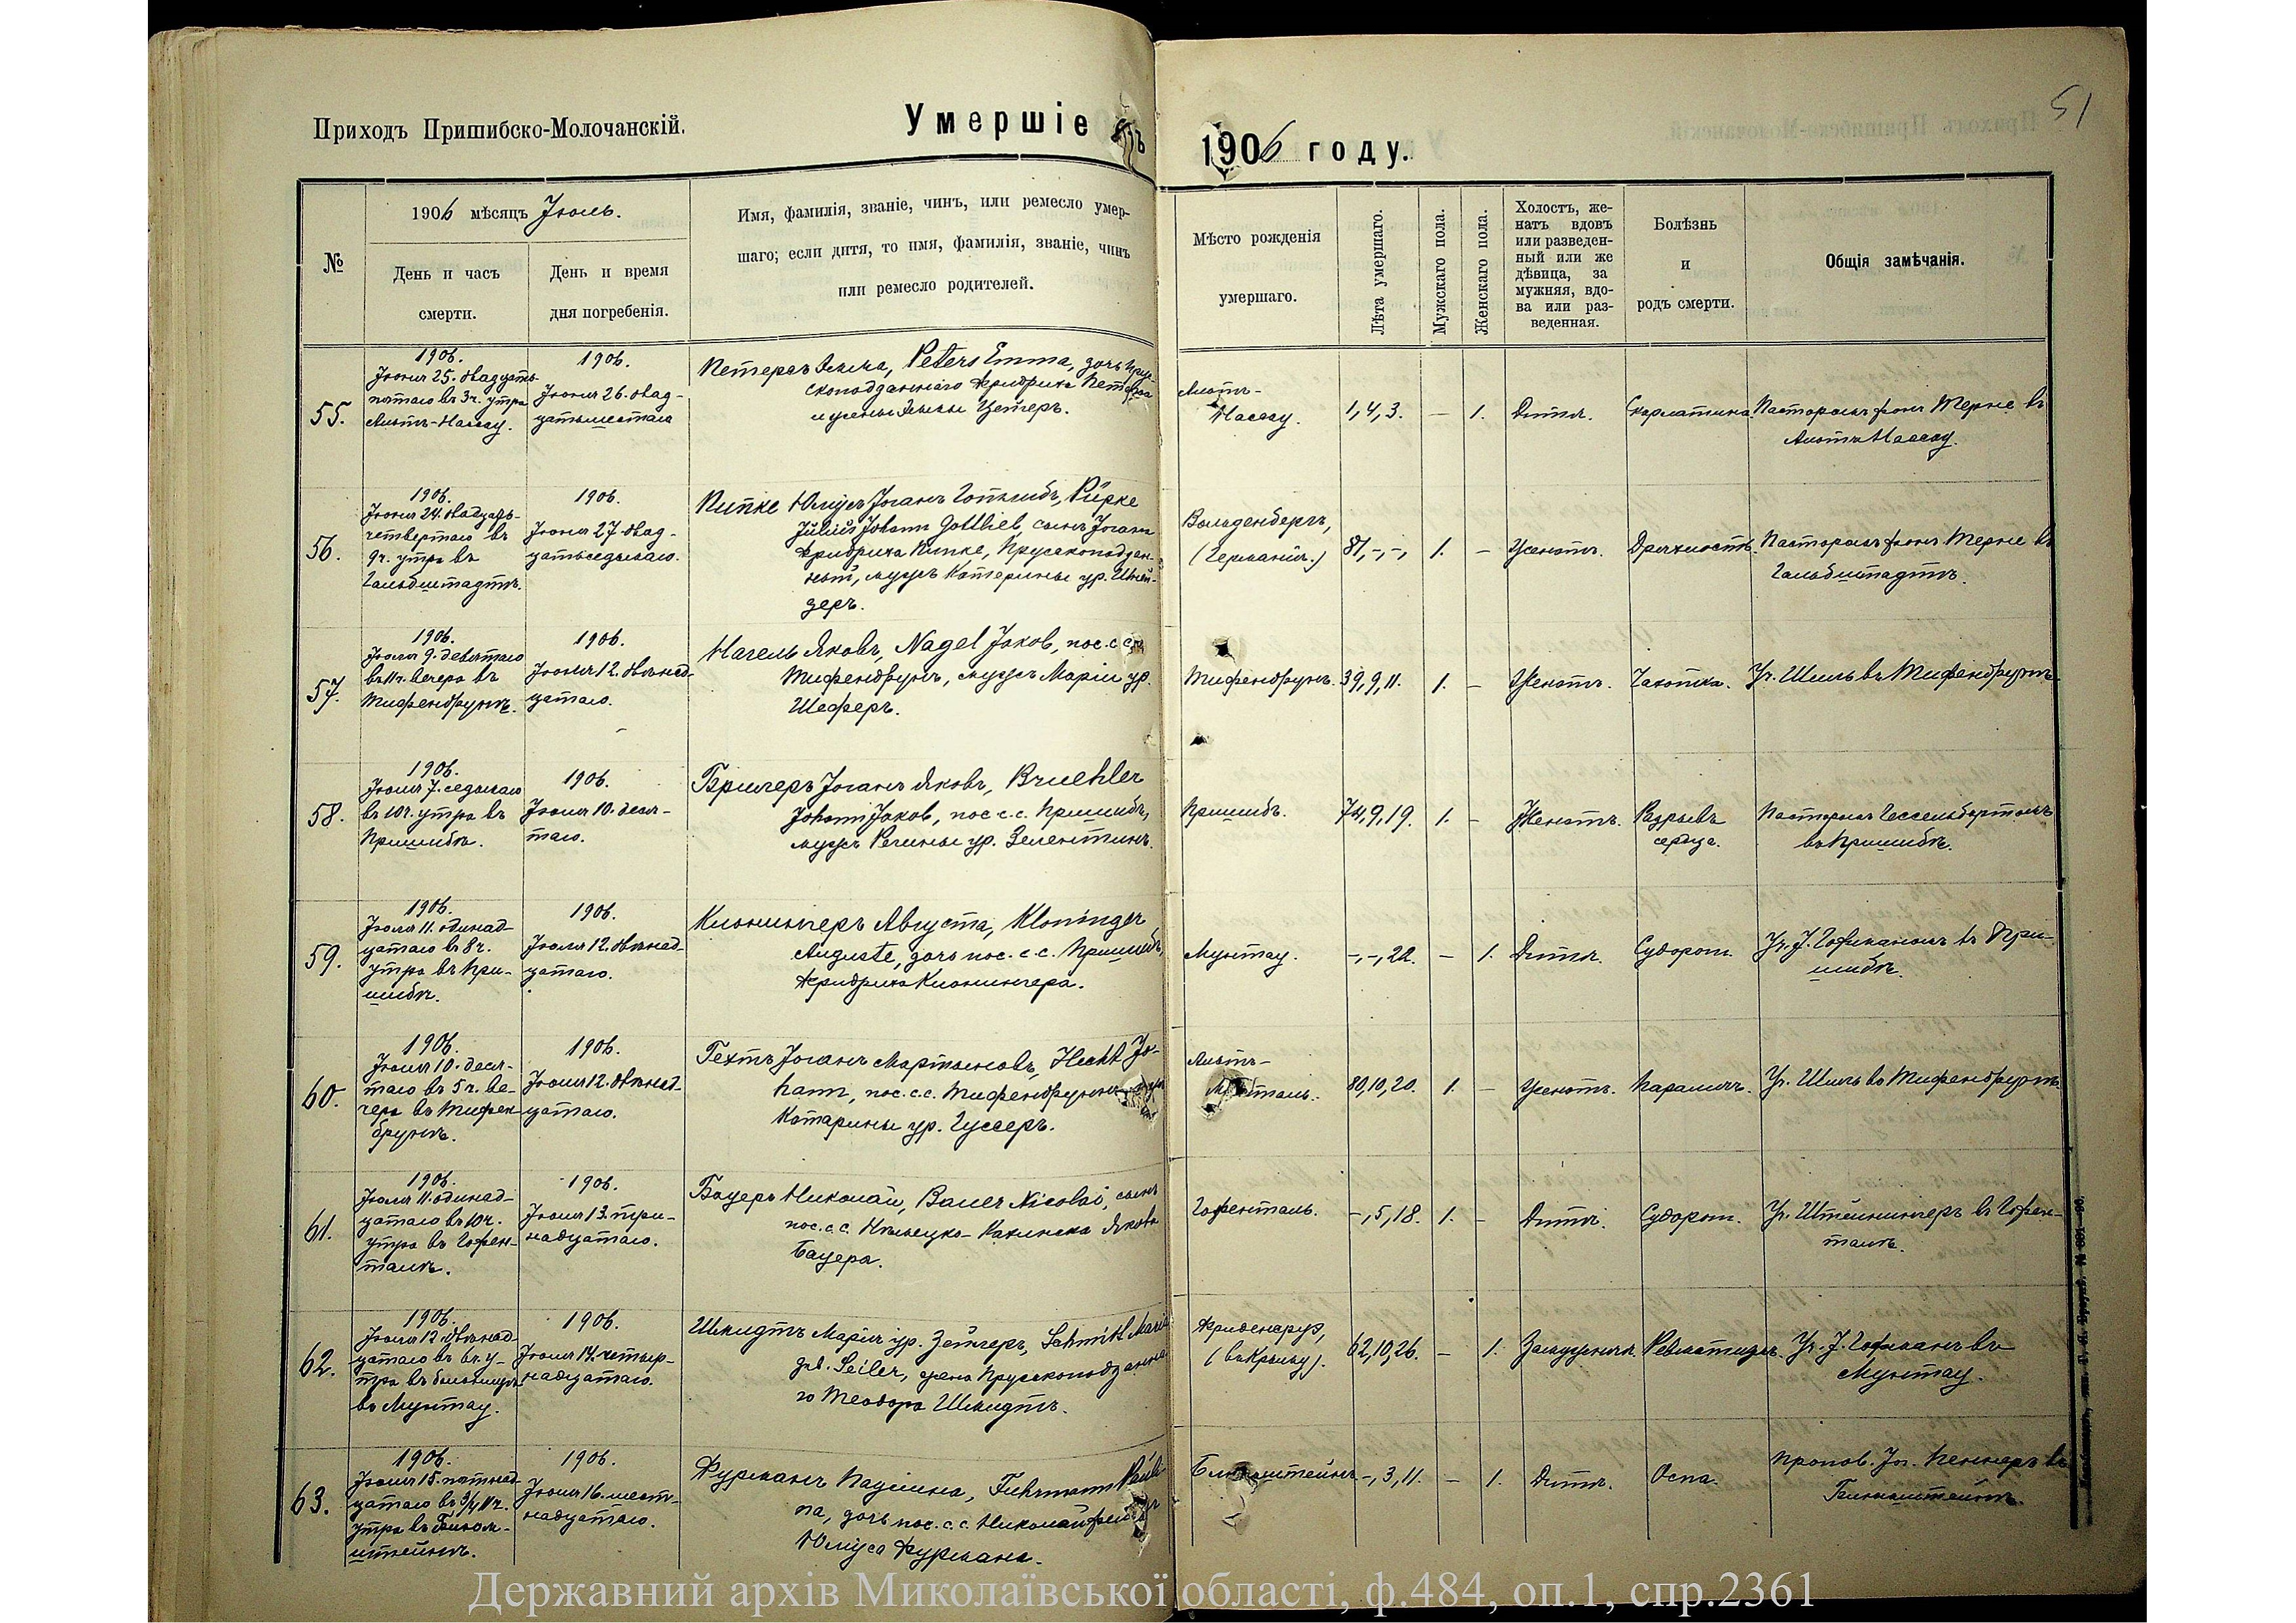 51
Приходъ Пришибско-Молочанскій.
Умершіе
1906 году.
№
1906 мѣсяцъ Іюль.
День и часъ
смерти.
День и время
дня погребенія.
Имя, фамилія, званіе, чинъ, или ремесло умер-
шаго; если дитя, то имя, фамилія, званіе, чинъ
или ремесло родителей.
Мѣсто рожденія
умершаго.
Лѣта умершаго.
Мужскаго пола.
Женскаго пола.
Холостъ, же-
натъ вдовъ
или разведен-
ный или же
дѣвица, за
мужняя, вдо-
ва или раз-
веденная.
Болѣзнь
и
родъ смерти.
Общія замѣчанія.
55.
1906.
Іюня 25. двадцать
пятаго въ 3ч. утра
Альтъ-Нассау.
1906.
Іюня 26. двад-
цатьшестаго
Петерсъ Эмма, Peters Emma, дочь прус-
скоподданнаго Фридриха Петерса
и жены
Альтъ-
Нассау.
1,4,3.
—
1.
Дитя.
Скарлатина.
Пасторомъ фонъ Терне въ
Альтъ Нассау.
56.
1906.
Іюня 24. двадцать-
четвертаго въ
9ч. утра въ
Гальбштадтъ.
1906.
Іюня 27. двад-
цатьседьмаго.
Пипке Юліусъ Іоганъ Готлибъ, Pipke
Julius Johann Gottlieb сынъ Іоганъ
Фридриха Пипке, Прусскоподдан-
ный, мужъ Катерины ур. Шней-
деръ.
Вольденбергъ,
(Германія.)
81,-,-,
1.
—
Женатъ.
Дряхлость.
Пасторомъ фонъ Терне въ
Гальбштадтъ.
57.
1906.
Іюля 9. девятаго
въ 11ч. вечера въ
Тифенбрунъ.
1906.
Іюля 12. двѣнад-
цатаго.
Нагель Яковъ, Nagel Jakob, пос. с. с.
Тифенбрунъ, мужъ Маріи ур.
Шеферъ.
Тифенбрунъ.
39,9,11.
1.
—
Женатъ.
Чахотка.
Уч. Шиль въ Тифенбрунъ.
58.
1906.
Іюля 7. седьмаго
въ 10ч. утра въ
Пришибъ.
1906.
Іюля 10. деся-
таго.
Брилеръ Іоганъ Яковъ, Bruehler
Johann Jakob, пос. с. с. Пришибъ,
мужъ Регины ур. Зелентинъ.
Пришибъ.
74,9,19.
1.
—
Женатъ.
Разрывъ
сердца.
Пасторомъ Гессельбартомъ
въ Пришибъ.
59.
1906.
Іюля 11. одинад-
цатаго въ 8ч.
утра въ При-
шибъ.
1906.
Іюля 12. двѣнад-
цатаго.
Клонингеръ Августа, Kloninger
Auguste, дочь пос. с. с. Пришибъ,
Фридриха Клонингера.
Мунтау.
-,-,22.
—
1.
Дитя.
Судороги.
Уч. І. Гофманомъ въ При-
шибъ.
60.
1906.
Іюля 10. деся-
таго въ 5ч. ве-
чера въ Тифен-
брунъ.
1906.
Іюля 12. двѣнад-
цатаго.
Гехтъ Іоганъ Мартыновъ, Hecht Jo-
hann, пос. с. с. Тифенбрунъ
Катарины ур. Гуссеръ.
Альтъ-
80,10,20.
1.
—
Женатъ.
Параличъ.
Уч. Шиль въ Тифенбрунъ.
61.
1906.
Іюля 11. одинад-
цатаго въ 10ч.
утра въ Гофен-
таль.
1906.
Іюля 13. три-
надцатаго.
Бауеръ Николай, Bauer Nicolai, сынъ
пос. с. с. Якова
Бауера.
Гофенталь.
-,5,18.
1.
—
Дитя.
Судороги.
Уч. Штейнингеръ въ Гофен-
таль.
62.
1906.
Іюля 12. двѣнад-
цатаго въ 6ч. у-
тра въ больницѣ
въ Мунтау.
1906.
Іюля 14. четыр-
надцатаго.
Шмидтъ Марія ур. Зейлеръ, Schmidt Maria
geb. Seiler, жена Прусскоподданна-
го Теодора Шмидтъ.
(въ Крыму).
62,10,26.
—
1.
Замужняя.
Ревматизмъ.
Уч. І. Гофманъ въ
Мунтау.
63.
1906.
Іюля 15. пятнад-
цатаго въ 3/4 11ч.
утра въ Блюм-
штейнъ.
1906.
Іюля 16. шест-
надцатаго.
Фурманъ Паулина, Fuhrmann Pauli-
na, дочь пос. с. с. Николайфельдъ
Юліуса Фурмана.
Блюмштейнъ
-,3,11.
—
1.
Дитя.
Оспа.
Пропов. Іог. Пеннеръ въ
Блюмштейнъ.
Державний архів Миколаївської області, ф.484, оп.1, спр.2361